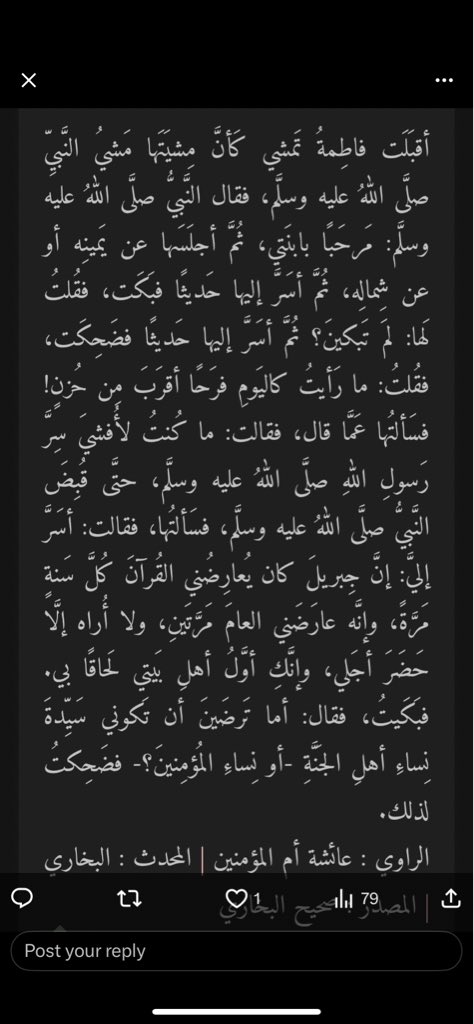 أقبَلَت فاطِمةُ تَمشي كَأنَّ مِشيَتَها مَشيُ النَّبيِّ
صلَّى اللهُ عليه وسلَّم، فقال النَّبيُّ صلَّى اللهُ عليه
وسلَّم: مَرحَبًا بابنَتي، ثُمَّ أجلَسَها عن يَمينِه أو
عن شِمالِه، ثُمَّ أسَرَّ إليها حَديثًا فبَكَت، فقُلتُ
لَها: لمَ تَبكينَ؟ ثُمَّ أسَرَّ إليها حَديثًا فضَحِكَت،
فقُلتُ: ما رَأيتُ كاليَومِ فرَحًا أقرَبَ مِن حُزنٍ!
فسَألتُها عَمَّا قال، فقالت: ما كُنتُ لأُفشيَ سِرَّ
رَسولِ اللهِ صلَّى اللهُ عليه وسلَّم، حتَّى قُبِضَ
النَّبيُّ صلَّى اللهُ عليه وسلَّم، فسَألتُها، فقالت: أسَرَّ
إليَّ: إنَّ جِبريلَ كان يُعارِضُني القُرآنَ كُلَّ سَنةٍ
مَرَّةً، وإنَّه عارَضَني العامَ مَرَّتَينِ، ولا أُراه إلَّا
حَضَرَ أجَلي، وإنَّكِ أوَّلُ أهلِ بَيتي لَحاقًا بي.
فبَكَيتُ، فقال: أما تَرضَينَ أن تَكوني سَيِّدةَ
نِساءِ أهلِ الجَنَّةِ -أو نِساءِ المُؤمِنينَ؟- فضَحِكتُ
لذلك.
الراوي : عائشة أم المؤمنين | المحدث : البخاري
| المصدر : صحيح البخاري
1 79
Post your reply